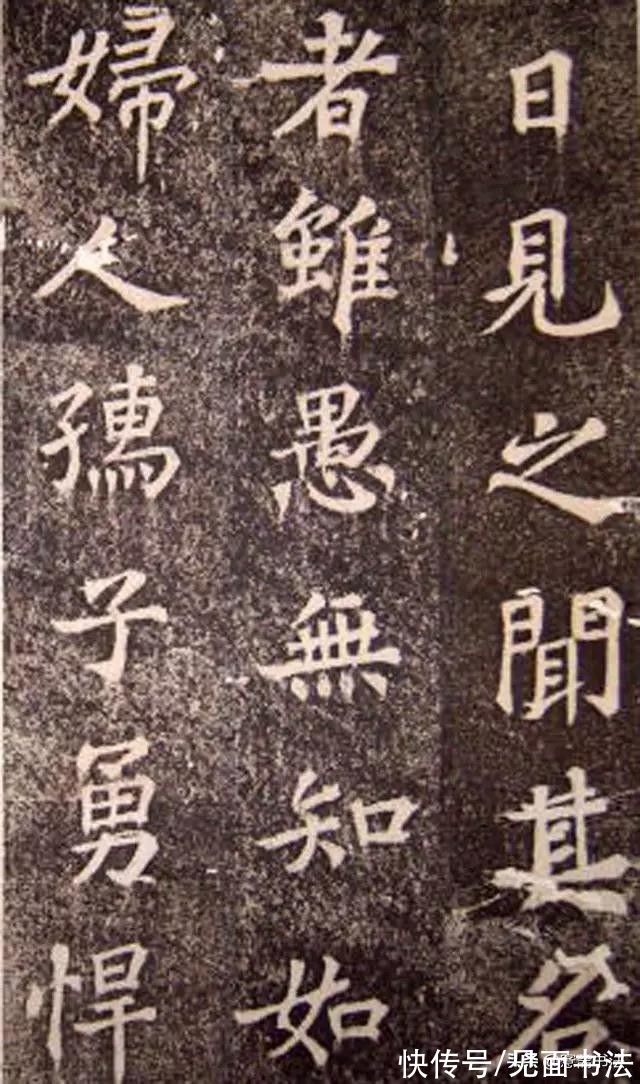 日見之聞其名
者雖愚無知如
婦人孺子勇悍
快传号/见面书法